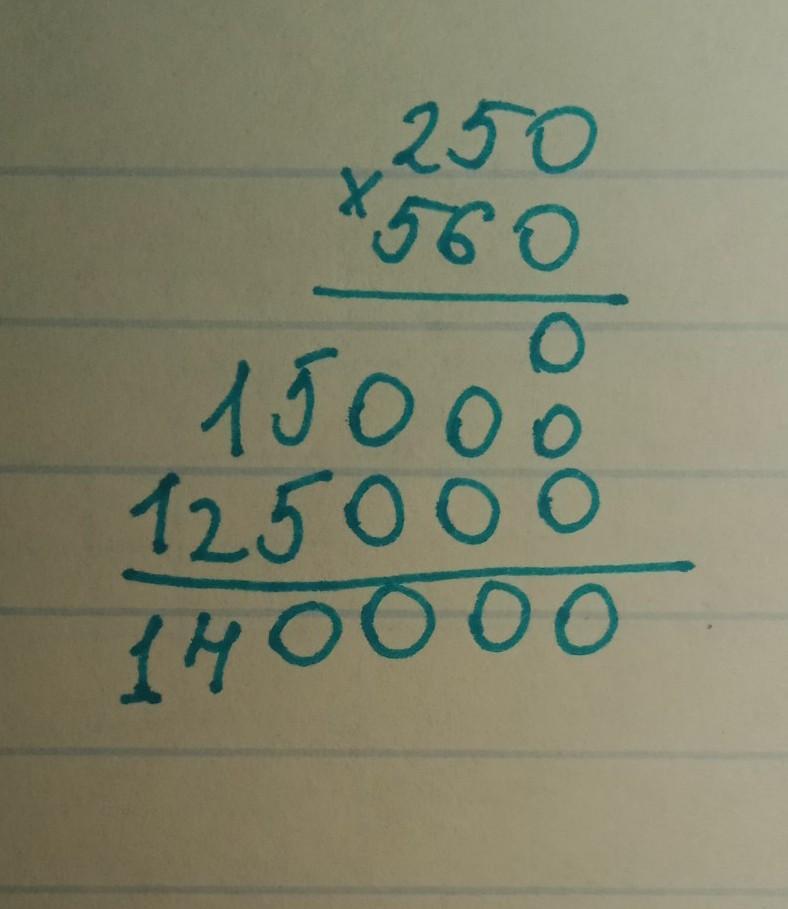 250
x
560
0
15000
125000
140000